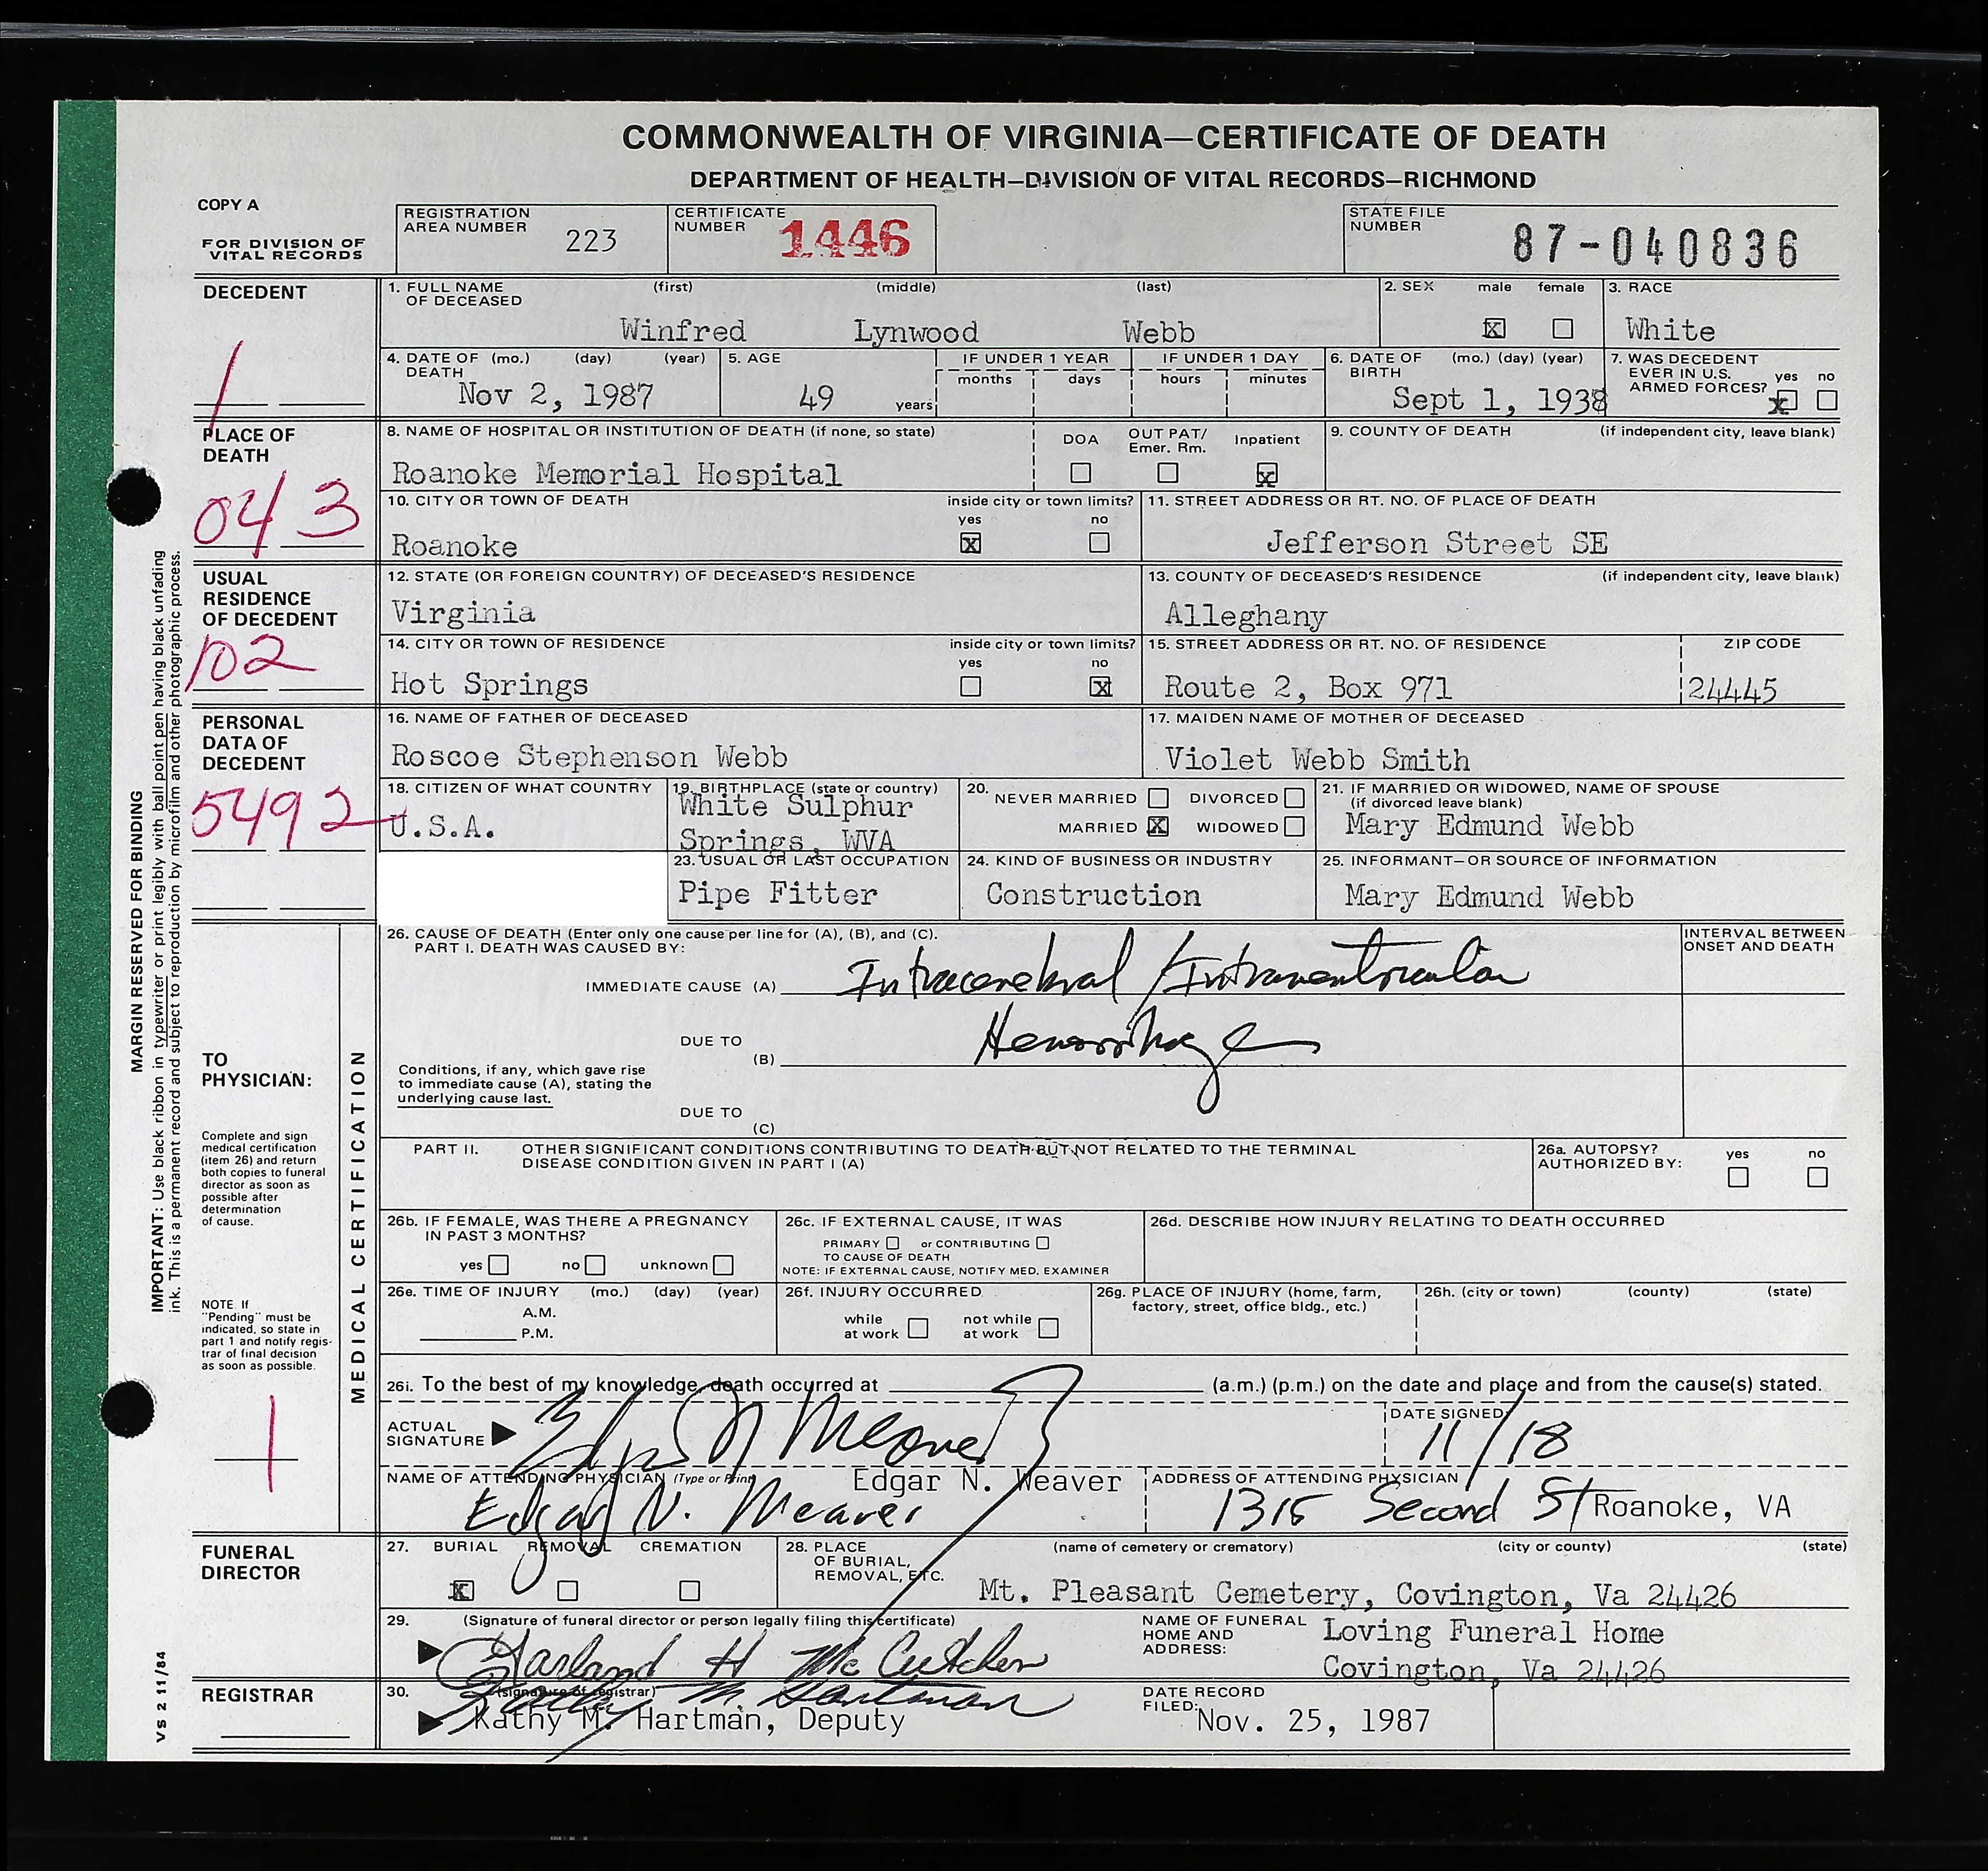 COMMONWEALTH OF VIRGINIA—CERTIFICATE OF DEATH
DEPARTMENT OF HEALTH—DIVISION OF VITAL RECORDS—RICHMOND
COPY A
FOR DIVISION OF
VITAL RECORDS
REGISTRATION
AREA NUMBER 223
CERTIFICATE
NUMBER 1446
STATE FILE
NUMBER 87-040836
DECEDENT
1. FULL NAME (first) (middle) (last)
OF DECEASED
Winfred Lynwood Webb
2. SEX male female
X
3. RACE
White
4. DATE OF (mo.) (day) (year)
DEATH
Nov 2, 1987
5. AGE
49 years
IF UNDER 1 YEAR
months days
IF UNDER 1 DAY
hours minutes
6. DATE OF (mo.) (day) (year)
BIRTH
Sept 1, 1938
7. WAS DECEDENT
EVER IN U.S.
ARMED FORCES? yes no
x
PLACE OF
DEATH
043
8. NAME OF HOSPITAL OR INSTITUTION OF DEATH (if none, so state)
Roanoke Memorial Hospital
DOA OUT PAT/ Emer. Rm. Inpatient
x
9. COUNTY OF DEATH (if independent city, leave blank)
10. CITY OR TOWN OF DEATH inside city or town limits?
yes no
Roanoke X
11. STREET ADDRESS OR RT. NO. OF PLACE OF DEATH
Jefferson Street SE
USUAL
RESIDENCE
OF DECEDENT
102
12. STATE (OR FOREIGN COUNTRY) OF DECEASED'S RESIDENCE
Virginia
13. COUNTY OF DECEASED'S RESIDENCE (if independent city, leave blank)
Alleghany
14. CITY OR TOWN OF RESIDENCE inside city or town limits?
yes no
Hot Springs X
15. STREET ADDRESS OR RT. NO. OF RESIDENCE ZIP CODE
Route 2, Box 971 24445
PERSONAL
DATA OF
DECEDENT
5492
16. NAME OF FATHER OF DECEASED
Roscoe Stephenson Webb
17. MAIDEN NAME OF MOTHER OF DECEASED
Violet Webb Smith
18. CITIZEN OF WHAT COUNTRY
U.S.A.
19. BIRTHPLACE (state or country)
White Sulphur
Springs, WVA
20. NEVER MARRIED DIVORCED
MARRIED X WIDOWED
21. IF MARRIED OR WIDOWED, NAME OF SPOUSE
(if divorced leave blank)
Mary Edmund Webb
23. USUAL OR LAST OCCUPATION
Pipe Fitter
24. KIND OF BUSINESS OR INDUSTRY
Construction
25. INFORMANT—OR SOURCE OF INFORMATION
Mary Edmund Webb
MARGIN RESERVED FOR BINDING
IMPORTANT: Use black ribbon in typewriter or print legibly with ball point pen having black unfading
ink. This is a permanent record and subject to reproduction by microfilm and other photographic process.
VS 2 11/84
TO
PHYSICIAN:
Complete and sign
medical certification
(item 26) and return
both copies to funeral
director as soon as
possible after
determination
of cause.
NOTE. If
"Pending" must be
indicated, so state in
part 1 and notify regis-
trar of final decision
as soon as possible.
MEDICAL CERTIFICATION
26. CAUSE OF DEATH (Enter only one cause per line for (A), (B), and (C).
PART I. DEATH WAS CAUSED BY:
INTERVAL BETWEEN
ONSET AND DEATH
IMMEDIATE CAUSE (A) Intracerebral / Intraventricular
DUE TO
(B) Hemorrhage
Conditions, if any, which gave rise
to immediate cause (A), stating the
underlying cause last.
DUE TO
(C)
PART II. OTHER SIGNIFICANT CONDITIONS CONTRIBUTING TO DEATH BUT NOT RELATED TO THE TERMINAL
DISEASE CONDITION GIVEN IN PART I (A)
26a. AUTOPSY? yes no
AUTHORIZED BY:
26b. IF FEMALE, WAS THERE A PREGNANCY
IN PAST 3 MONTHS?
yes no unknown
26c. IF EXTERNAL CAUSE, IT WAS
PRIMARY or CONTRIBUTING
TO CAUSE OF DEATH
NOTE: IF EXTERNAL CAUSE, NOTIFY MED. EXAMINER
26d. DESCRIBE HOW INJURY RELATING TO DEATH OCCURRED
26e. TIME OF INJURY (mo.) (day) (year)
A.M.
P.M.
26f. INJURY OCCURRED
while at work not while at work
26g. PLACE OF INJURY (home, farm,
factory, street, office bldg., etc.)
26h. (city or town) (county) (state)
26i. To the best of my knowledge, death occurred at (a.m.) (p.m.) on the date and place and from the cause(s) stated.
ACTUAL
SIGNATURE Edgar N Weaver
DATE SIGNED:
11/18
NAME OF ATTENDING PHYSICIAN (Type or Print) Edgar N. Weaver
Edgar N. Weaver
ADDRESS OF ATTENDING PHYSICIAN
1315 Second St Roanoke, VA
FUNERAL
DIRECTOR
27. BURIAL REMOVAL CREMATION
X
28. PLACE
OF BURIAL,
REMOVAL, ETC.
(name of cemetery or crematory) (city or county) (state)
Mt. Pleasant Cemetery, Covington, Va 24426
29. (Signature of funeral director or person legally filing this certificate)
Garland H McCutchen
NAME OF FUNERAL
HOME AND
ADDRESS:
Loving Funeral Home
Covington, Va 24426
REGISTRAR
30. (signature of registrar)
Kathy M. Hartman
Kathy M. Hartman, Deputy
DATE RECORD
FILED: Nov. 25, 1987